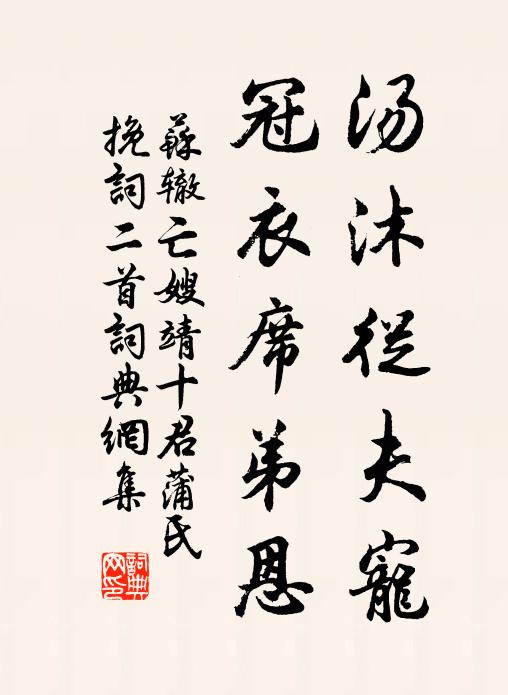 汤沐従夫寵
冠衣席弟恩
蘇辙亡嫂靖十君蒲氏
挽詞二首詞典網集
詞典網印